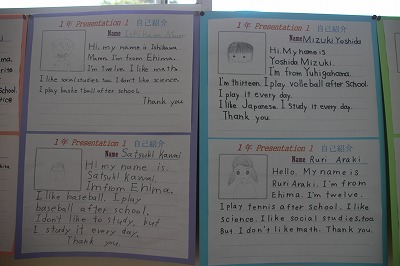 1年 Presentation 1 自己紹介
Name
Hi, my name is Ishikawa
Manon. I'm from Ehima.
I'm twelve. I like math
I like social studies too. I don't like science.
I play basketball after school.
Thank you
1年 Presentation 1 自己紹介
Name Mizuki Yoshida
Hi. My name is
Yoshida Mizuki.
I'm from Yuhigahama.
I'm thirteen. I play volleball after school.
I play it every day.
I like Japanese. I study it every day.
Thank you.
1年 Presentation 1 自己紹介
Name Satsuki Kawai
Hi my name is
Satsuki Kawai.
I'm from Ehima.
I like baseball. I play
baseball after school.
I don't like to study, but
I study it every day.
Thank you.
1年 Presentation 1 自己紹介
Name Ruri Araki
Hello. My name is
Ruri Araki. I'm from
Ehima. I'm twelve.
I play tennis after school. I like
science. I like social studies, too.
But I don't like math. Thank you.